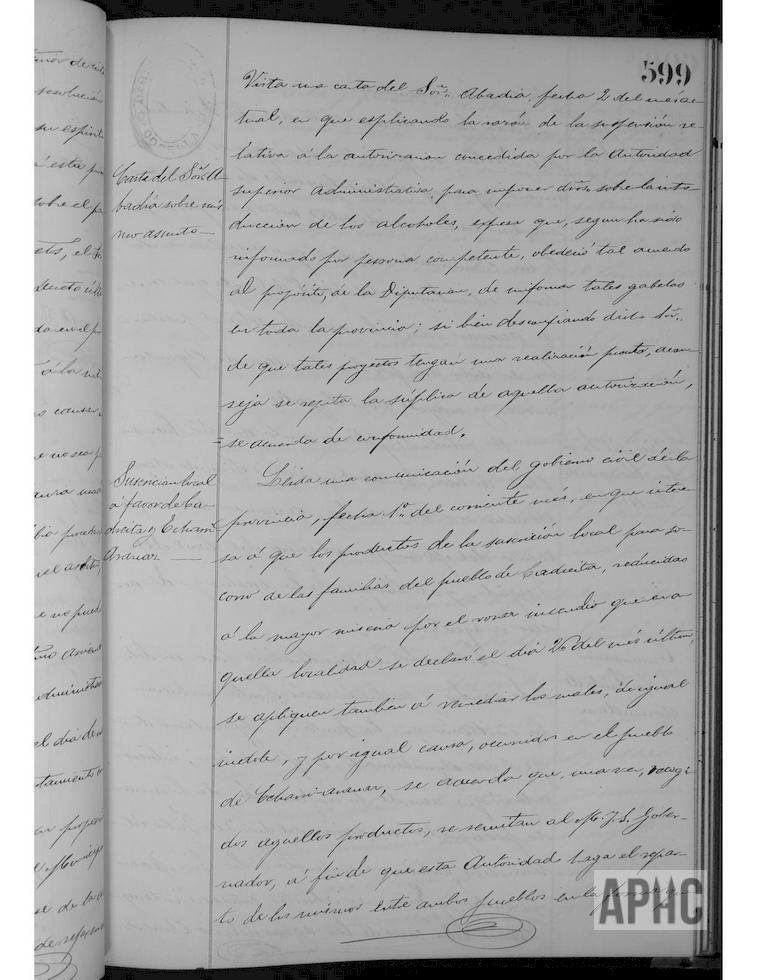 599
Vista una carta del Sor. Abadía, fecha 2 del mes ac-
tual, en que esplicando la razón de la suspensión re-
lativa á la autorizacion concedida por la Autoridad
superior Administrativa, para imponer dros. sobre la intro-
duccion de los alcoholes, espresa que, segun ha sido
informado por persona competente, obedeció tal acuerdo
al propósito, de la Diputacion, de uniformar tales gabelas
en toda la provincia; si bien desconfiando dicho Sor.
de que tales proyectos tengan una realización pronta, acon-
seja se repita la súplica de aquella autorización,
= se acuerda de conformidad.
Carta del Sor. A-
badía sobre mis-
mo asunto
Leida una comunicación del gobierno civil de la
provincia, fecha 1º del corriente mes, en que intere-
sa á que los productos de la suscrición local para so-
corro de las familias del pueblo de Cadreita, reducidas
á la mayor miseria por el voraz incendio que en a-
quella localidad se declaró el dia 26 del mes último,
se apliquen tambien á remediar los males, de igual
indole, y por igual causa, ocurridos en el pueblo
de Echarri-aranaz, se acuerda que, una vez, recogi-
dos aquellos productos, se remitan al M. I. S. Gober-
nador, á fin de que esta Autoridad haga el repar-
to de los mismos entre ambos pueblos en la forma que
Suscricion local
á favor de Ca-
dreita y Echarri
Aranaz
APHC